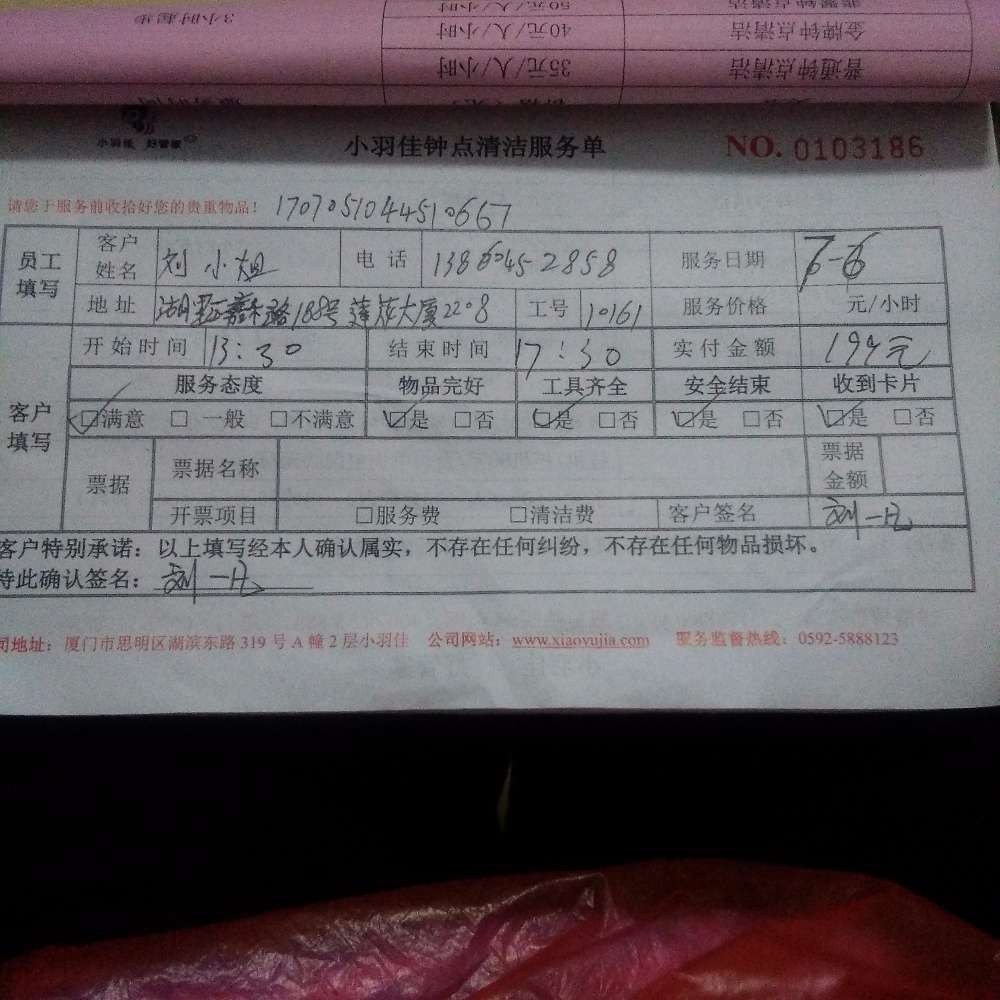 50元/人/小时
金牌钟点清洁 40元/人/小时 3小时起步
普通钟点清洁 35元/人/小时
小羽佳 好管家
小羽佳钟点清洁服务单 NO. 0103186
请您于服务前收拾好您的贵重物品！ 1707051044510667
员工填写 客户姓名 刘小姐 电话 服务日期 7-6
地址 路188号莲花大厦2208 工号 10161 服务价格 元/小时
开始时间 13:30 结束时间 17:30 实付金额 194元
客户填写 服务态度 物品完好 工具齐全 安全结束 收到卡片
☑满意 □一般 □不满意 ☑是 □否 ☑是 □否 ☑是 □否 ☑是 □否
票据 票据名称 票据金额
开票项目 □服务费 □清洁费 客户签名
客户特别承诺：以上填写经本人确认属实，不存在任何纠纷，不存在任何物品损坏。
特此确认签名：
司地址：厦门市思明区湖滨东路319号A幢2层小羽佳 公司网站：www.xiaoyujia.com 服务监督热线：0592-5888123